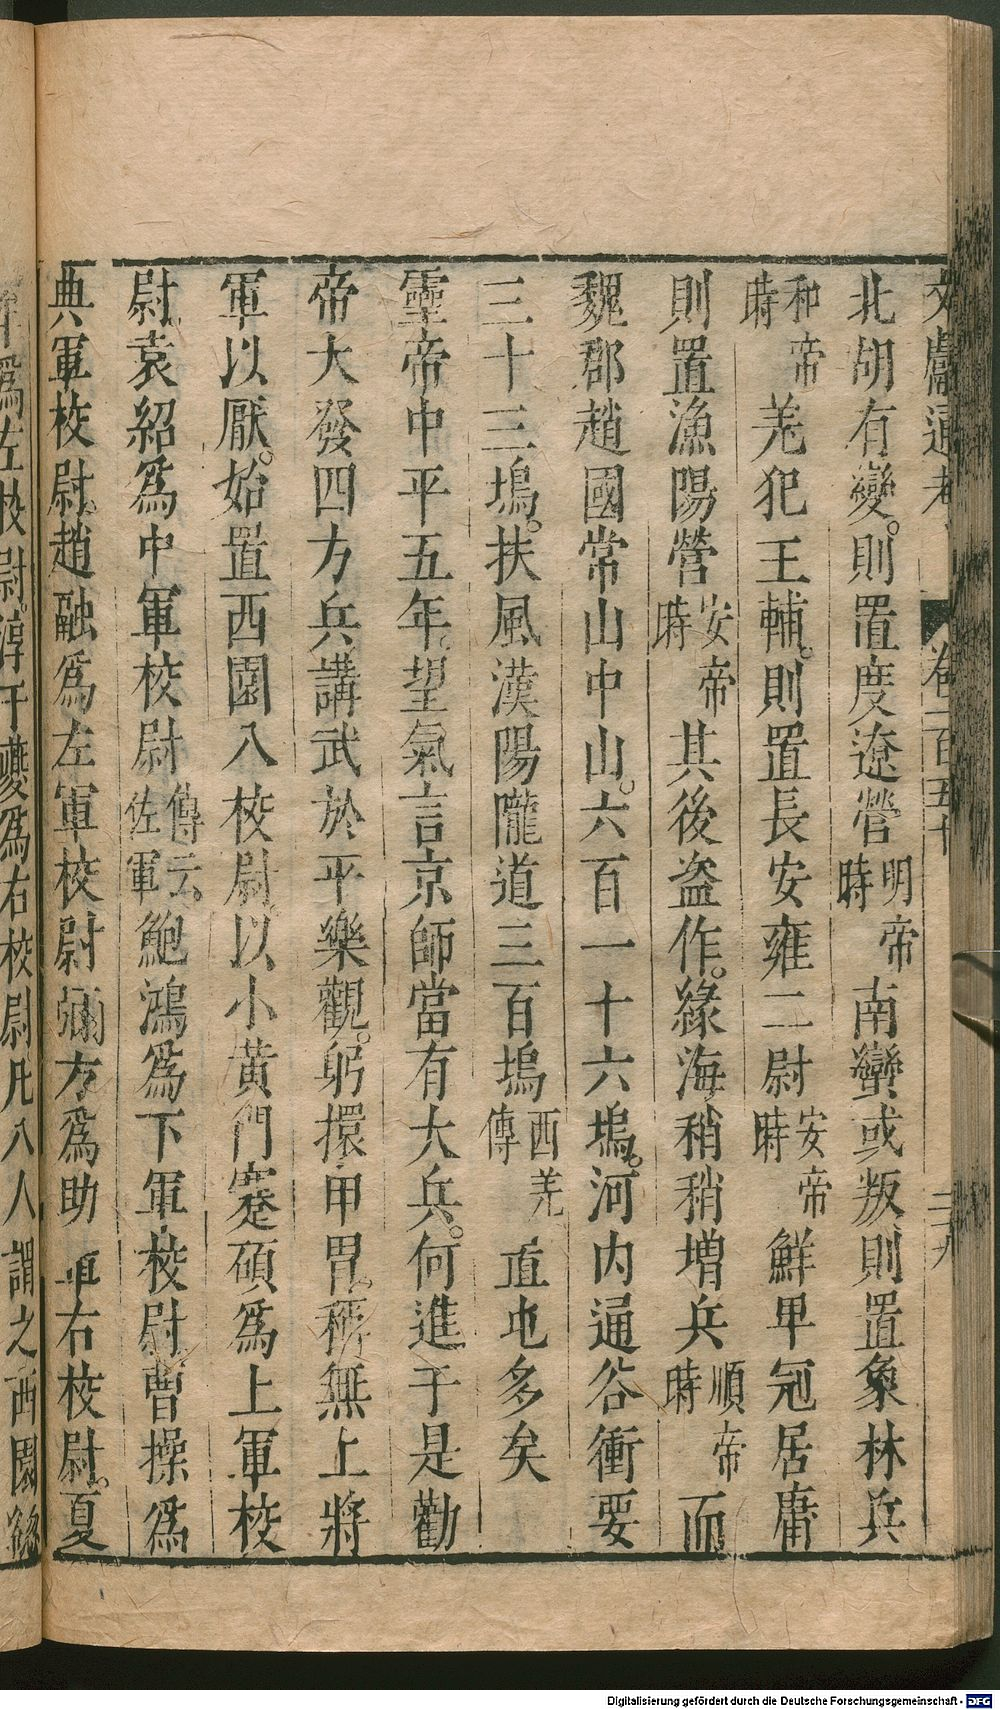 文獻通考 卷一百五十 二九
北胡有變則置度遼營明帝時南蠻或叛則置象林兵
和帝時羌犯王輔則置長安雍二尉安帝時鮮卑冦居庸
則置漁陽營安帝時其後盗作緣海稍稍增兵順帝時而
魏郡趙國常山中山六百一十六塢河内通谷衝要
三十三塢扶風漢陽隴道三百塢西羌傳直屯多矣
靈帝中平五年望氣言京師當有大兵何進于是勸
帝大發四方兵講武於平樂觀躬擐甲胃稱無上將
軍以厭始置西園八校尉以小黃門蹇碩爲上軍校
尉袁紹爲中軍校尉傳云佐軍鮑鴻爲下軍校尉曹操爲
典軍校尉趙融爲左軍校尉馮方爲助軍右校尉夏
牟爲左校尉淳于夔爲右校尉凡八人謂之西園
Digitalisierung gefördert durch die Deutsche Forschungsgemeinschaft - DFG